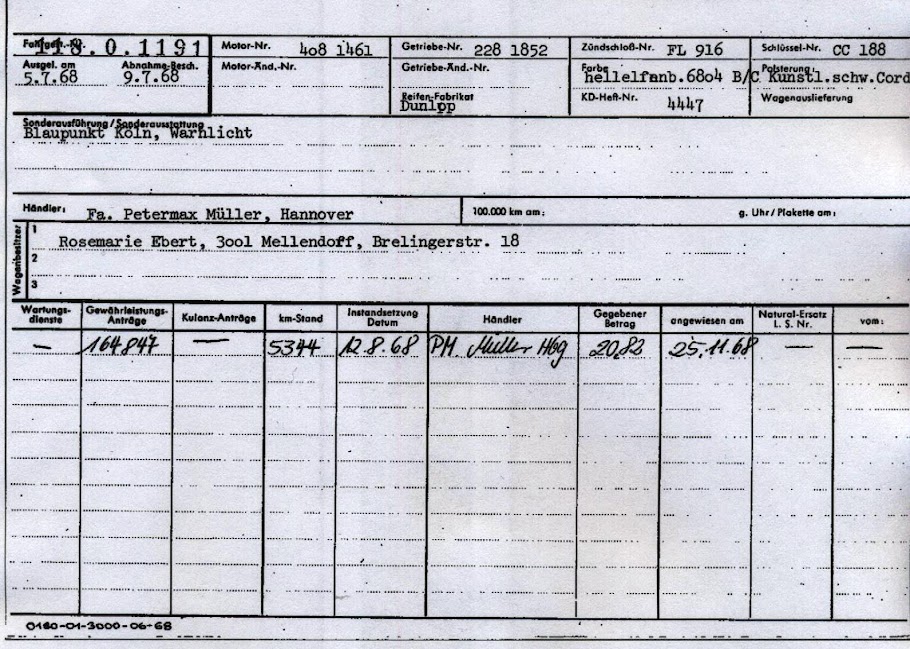 Fahrgest.-Nr. 118.0.1191 Motor-Nr. 4o8 1461 Getriebe-Nr. 228 1852 Zündschloß-Nr. FL 916 Schlüssel-Nr. CC 188
Ausgel. am 5.7.68 Abnahme-Besch. 9.7.68 Motor-Änd.-Nr. Getriebe-Änd.-Nr. Farbe hellelfenb.68o4 B/C Polsterung: Kunstl.schw.Cord
Reifen-Fabrikat Dunlop KD-Heft-Nr. 4447 Wagenauslieferung
Sonderausführung/Sonderausstattung
Blaupunkt Köln, Warnlicht
Händler: Fa. Petermax Müller, Hannover 100.000 km am: g. Uhr/Plakette am:
Wagenbesitzer
1 Rosemarie Ebert, 3oo1 Mellendoff, Brelingerstr. 18
2
3
Wartungs-dienste Gewährleistungs-Anträge Kulanz-Anträge km-Stand Instandsetzung Datum Händler Gegebener Betrag angewiesen am Natural-Ersatz L. S. Nr. vom:
— 164847 — 5344 12.8.68 PM Müller Hbg 20,82 25.11.68 — —
0180-01-3000-06-68